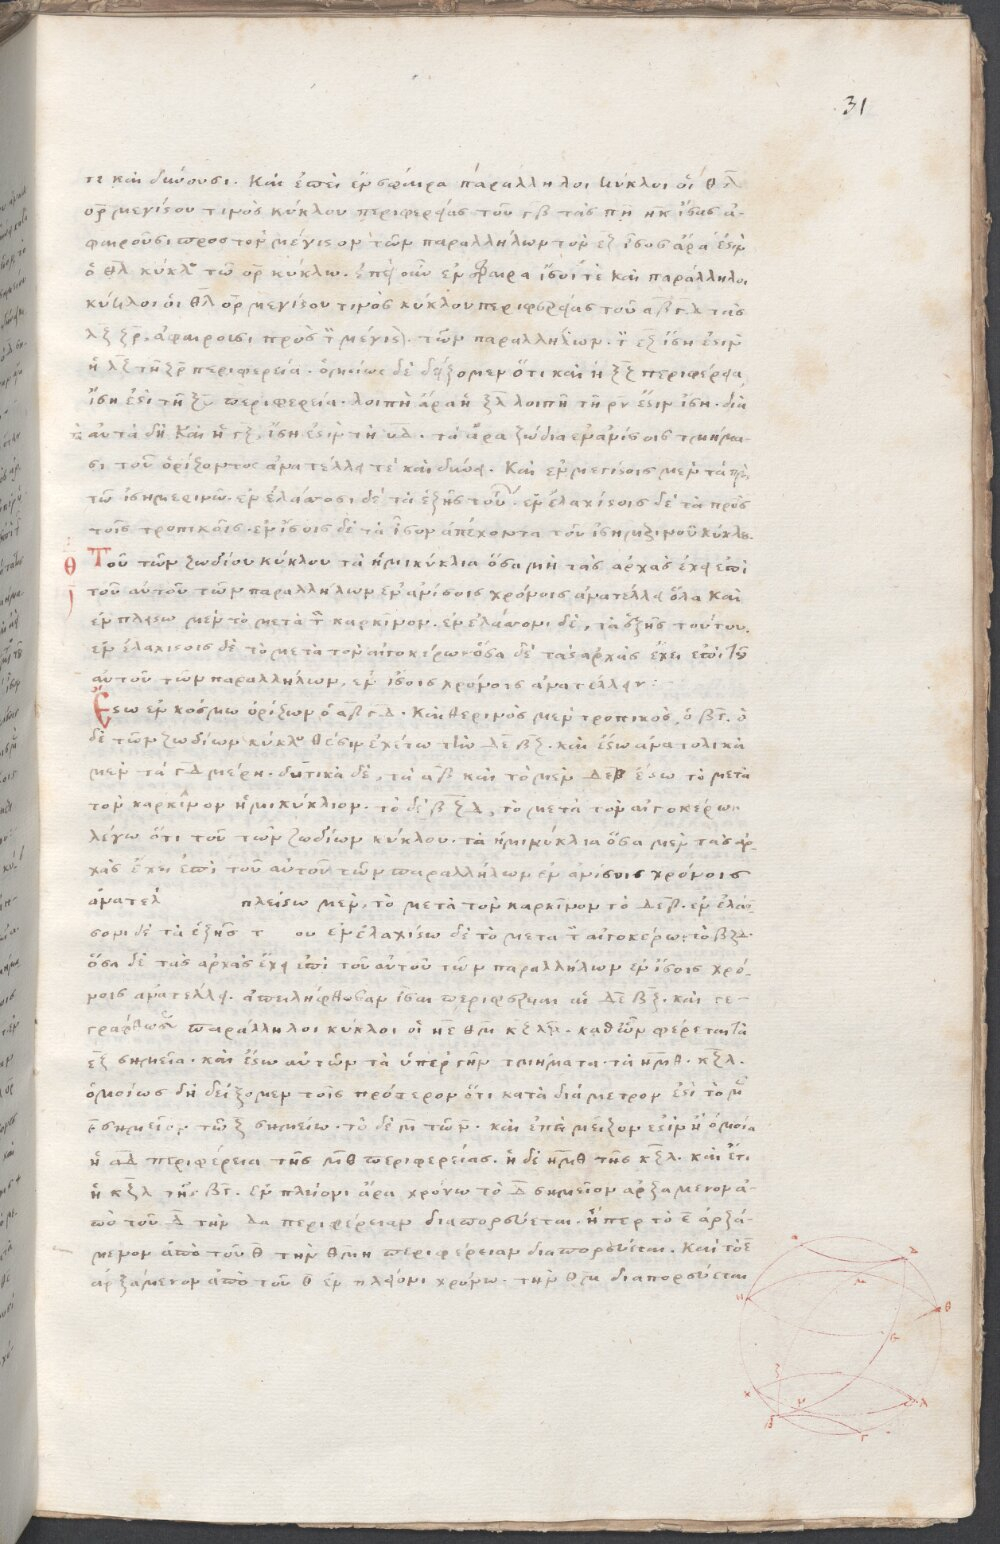 31
τε καὶ δύνουσι. Καὶ ἐπεὶ ἐν σφαίρα παράλληλοι κύκλοι οἱ θλ
ορ μεγίστου τινὸς κύκλου περιφερείας τοῦ γβ τὰς πη ηκ ἴσας ἀ-
φαιροῦσι προς τὸν μέγιστον τῶν παραλλήλων τὸν εξ ἴσος ἄρα ἐστὶν
ὁ θλ κύκλος τῶ ορ κύκλω. ἐπεὶ οὖν ἐν σφαίρα ἴσοι τὲ καὶ παράλληλοι
κύκλοι οἱ θλ ορ μεγίστου τινὸς κύκλου περιφερείας τοῦ αβγδ τὰς
λξ ξρ, ἀφαιροῦσι πρὸς τὸν μέγιστον τῶν παραλλήλων. τὸν εξ ἴση ἐστὶν
ἡ λξ τῆ ξρ περιφερεία. ὁμοίως δὲ δείξομεν ὅτι καὶ ἡ ξξ περιφέρεια
ἴση ἐστὶ τῆ ξυ περιφερεία. λοιπὴ ἄρα ἡ ξλ λοιπῆ τῆ ρν ἐστιν ἴση. διὰ
τὰ αὐτὰ δὴ Καὶ ἡ γξ, ἴση ἐστὶν τῆ υδ. τὰ ἄρα ζώδια ἐν ἀνίσοις τμήμα-
σι τοῦ ὁρίζοντος ἀνατέλλει τὲ καὶ δύνει. Καὶ ἐν μεγίστοις μὲν τὰ πρὸς
τῶ ἰσημερινῶ. ἐν ἐλάσσοσι δὲ τὰ ἑξῆς τού. ἐν ἐλαχίστοις δὲ τὰ πρὸς
τοῖς τροπικοῖς. ἐν ἴσοις δὲ τὰ ἴσον ἀπέχοντα τοῦ ἰσημερινοῦ κύκλου.
θ Τοῦ τῶν ζωδίου κύκλου τὰ ἡμικύκλια ὅσα μὴ τὰς ἀρχὰς ἔχει ἐπὶ
τοῦ αὐτοῦ τῶν παραλλήλων ἐν ἀνίσοις χρόνοις ἀνατέλλει ὅλα Καὶ
ἐν πλείω μὲν τὸ μετὰ τὸν καρκίνον. ἐν ἐλάσσονι δὲ, τὰ ἑξῆς τούτου.
ἐν ἐλαχίστοις δὲ τὸ μετὰ τὸν αἰγοκέρων ὅσα δὲ τὰς αρχὰς ἔχει ἐπὶ τοῦ
αὐτοῦ τῶν παραλλήλων, ἐν ἴσοις χρόνοις ἀνατέλλειν:
Ἔστω ἐν κόσμω ὁρίζων ὁ αβγδ. Καὶ θερινὸς μὲν τροπικὸς, ὁ βγ. ὁ
δὲ τῶν ζωδίων κύκλος θέσιν ἐχέτω τὴν δεβζ. καὶ ἔστω ἀνατολικὰ
μὲν τὰ γδ μέρη. δυτικὰ δὲ, τὰ αβ καὶ τὸ μὲν δεβ ἔστω τὸ μετὰ
τὸν καρκίνον ἡμικύκλιον. τὸ δὲ βζδ, τὸ μετὰ τὸν αἰγοκέρω.
λέγω ὅτι τοῦ τῶν ζωδίων κύκλου. τὰ ἡμικύκλια ὅσα μὲν τὰς ἀρ-
χὰς ἔχει ἐπὶ τοῦ αὐτοῦ τῶν παραλλήλων ἐν ἀνίσοις χρόνοις
ἀνατελ πλείστω μὲν, τὸ μετὰ τὸν καρκῖνον τὸ δεβ. ἐν ἐλάσ
σονι δὲ τὰ ἑξῆς τ ου ἐν ἐλαχίστω δὲ τὸ μετα τὸν αἰγοκέρω: τὸ βζδ.
ὅσα δὲ τὰς αρχὰς ἔχει ἐπὶ τοῦ αὐτοῦ τῶν παραλλήλων ἐν ἴσοις χρό-
νοις ἀνατέλλει. ἀπειλήφθωσαν ἴσαι περιφέρειαι αἱ δε βζ. καὶ γε-
γράφθωσαν παράλληλοι κύκλοι οἱ ηε θμ κζλν. καθ' ὧν φέρεται τὰ
εζ σημεῖα. καὶ ἔστω αὐτῶν τὰ ὑπὲρ γῆν τμήματα. τὰ ημθ. κζλ.
ὁμοίως δὴ δείξομεν τοῖς πρότερον ὅτι κατὰ διάμετρον ἐστὶ τὸ μὲν
ε σημεῖον τῶ ζ σημείω. τὸ δὲ μ τῶ ν. καὶ ἐπεὶ μείζον ἐστὶν ἢ ὁμοία
ἡ αδ περιφέρεια τῆς μθ περιφερείας. ἡ δὲ ημθ τῆς κζλ. καὶ ἔτι
ἡ κζλ τῆς βγ. Ἐν πλείονι ἄρα χρόνω τὸ δ σημεῖον αρξαμενον ἀ-
πὸ τοῦ δ τὴν δα περιφέρειαν διαπορεύεται. ἤπερ τὸ ε ἀρξά-
μενον ἀπὸ τοῦ θ τὴν θμη περιφέρειαν διαπορεύεται. Καὶ τὸ ε
ἀρξάμενον ἀπὸ τοῦ θ ἐν πλείονι χρόνω. τὴν θμ διαπορεύεται